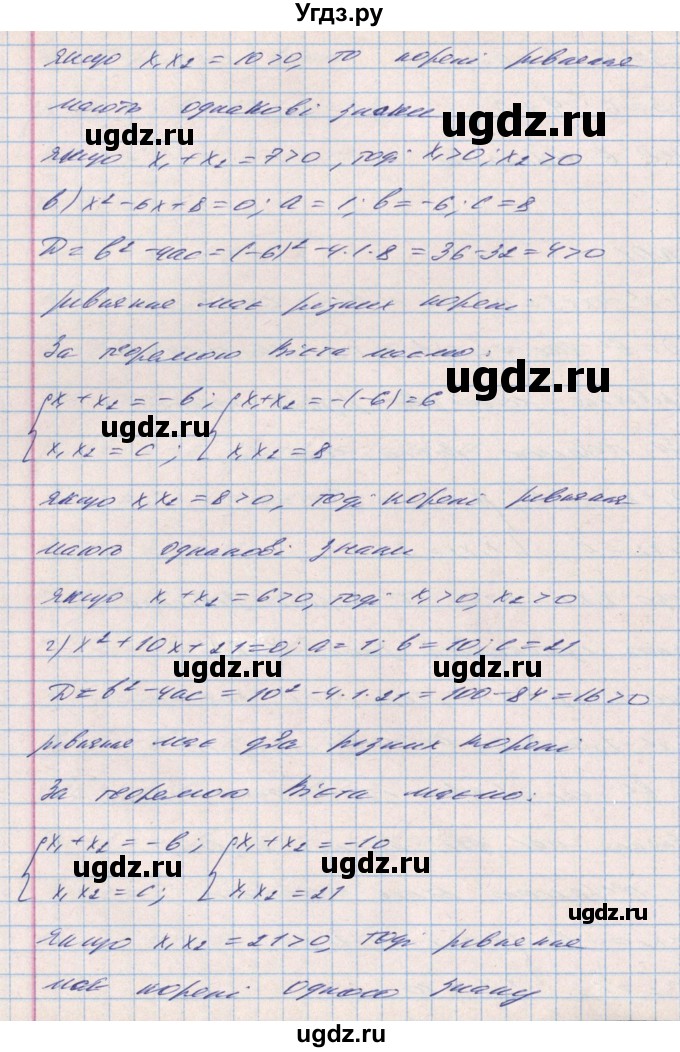 Угдз.ру
якщо x₁x₂ = 10>0, то корені рівняння
мають однакові знаки
ugdz.ru ugdz.ru
якщо x₁+x₂ = 7>0, тоді x₁>0; x₂>0
в) x²-6x+8=0; a=1; b=-6; c=8
D=b²-4ac=(-6)²-4·1·8=36-32=4>0
рівняння має різних корені
За теоремою Вієта маємо:
ugdz.ru
{x₁+x₂=-b; {x₁+x₂=-(-6)=6
ugdz.ru
x₁x₂=c; x₁x₂=8
якщо x₁x₂=8>0, тоді корені рівняння
мають однакові знаки
якщо x₁+x₂=6>0, тоді x₁>0, x₂>0
г) x²+10x+21=0; a=1; b=10; c=21
ugdz.ru ugdz.ru
D=b²-4ac=10²-4·1·21=100-84=16>0
рівняння має два різних корені
За теоремою Вієта маємо:
{x₁+x₂=-b; {x₁+x₂=-10
ugdz.ru ugdz.ru
x₁x₂=c; x₁x₂=21
ugdz.ru
якщо x₁x₂=21>0, тоді рівняння
має корені одного знаку
ugdz.ru